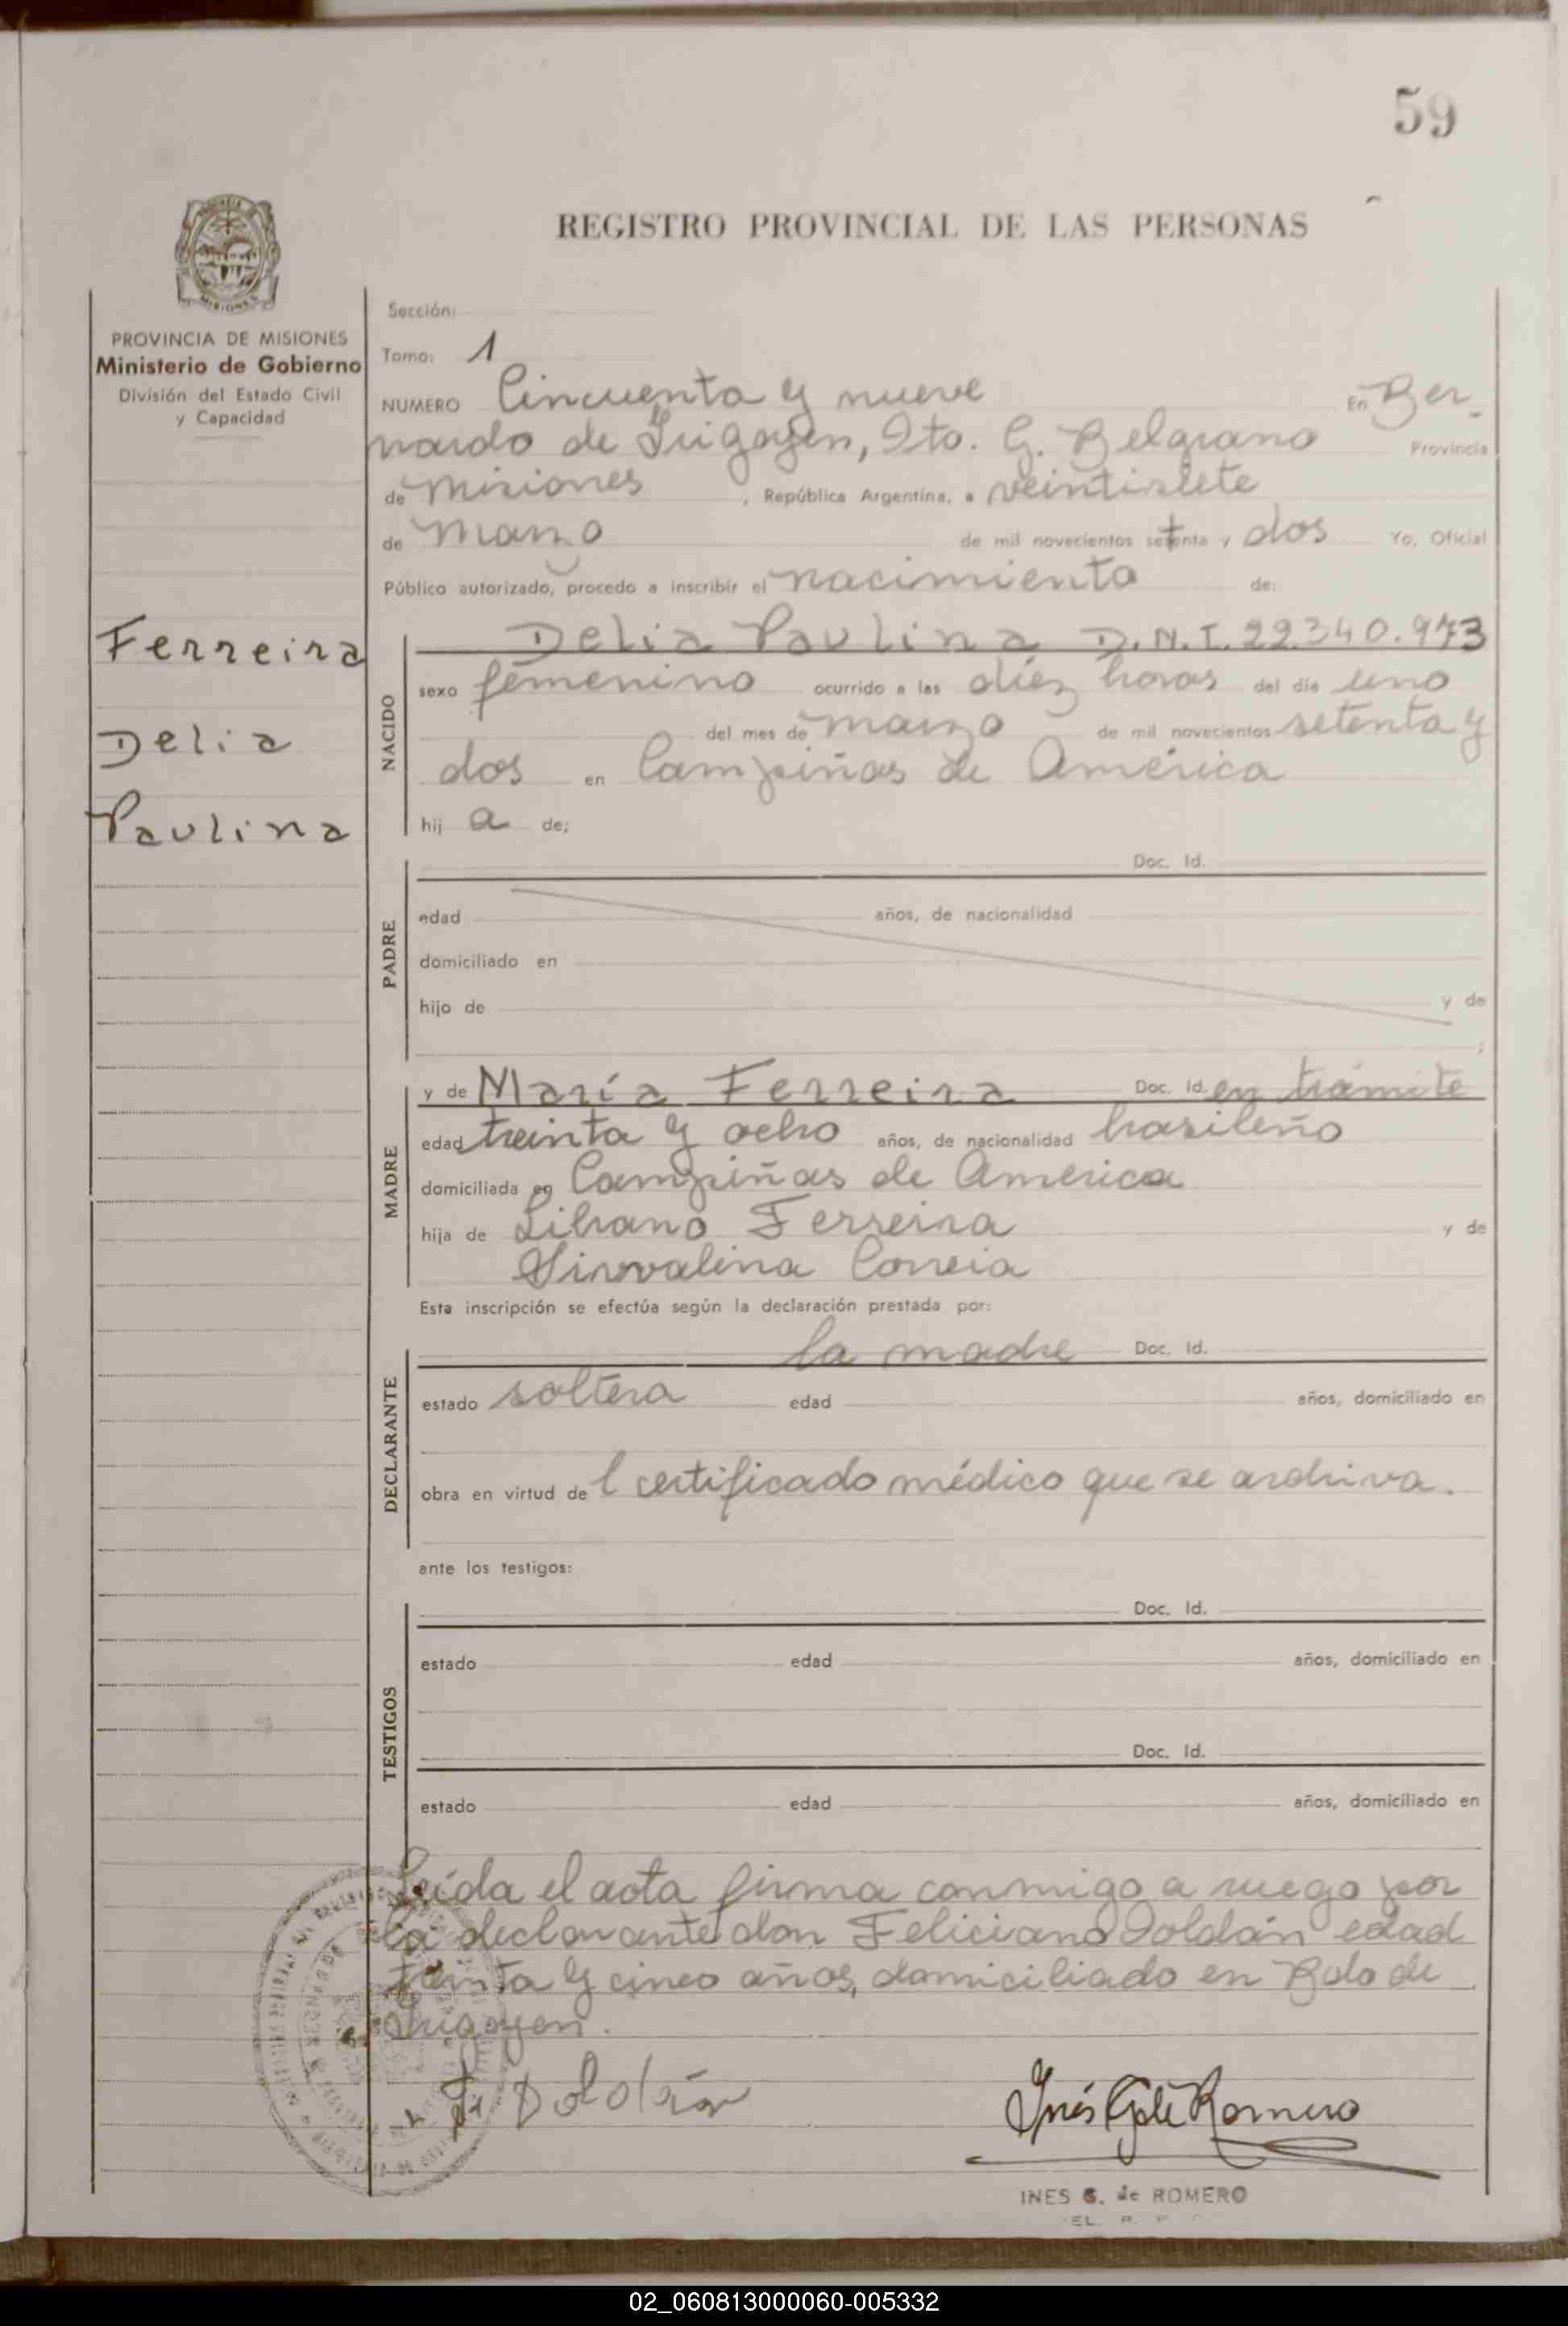 59
REGISTRO PROVINCIAL DE LAS PERSONAS
PROVINCIA DE MISIONES
Ministerio de Gobierno
División del Estado Civil
y Capacidad
Ferreira
Delia
Paulina
Sección:
Tomo: 1
NUMERO Cincuenta y nueve En Ber-
nardo de Irigoyen, Dto. G. Belgrano Provincia
de Misiones, República Argentina, a veintisiete
de marzo de mil novecientos setenta y dos Yo, Oficial
Público autorizado, procedo a inscribir el nacimiento de:
NACIDO
Delia Paulina D.N.I. 22.340.973
sexo femenino ocurrido a las diez horas del día uno
del mes de marzo de mil novecientos setenta y
dos en Campiñas de América
hij a de;
PADRE
Doc. Id.
edad años, de nacionalidad
domiciliado en
hijo de y de
;
MADRE
y de María Ferreira Doc. Id. en trámite
edad treinta y ocho años, de nacionalidad brasileño
domiciliada en Campiñas de América
hija de Libano Ferreira y de
Correia
Esta inscripción se efectúa según la declaración prestada por:
DECLARANTE
la madre Doc. Id.
estado soltera edad años, domiciliado en
obra en virtud de l certificado médico que se archiva.
ante los testigos:
TESTIGOS
Doc. Id.
estado edad años, domiciliado en
Doc. Id.
estado edad años, domiciliado en
Leída el acta firma conmigo a ruego por
la declarante don Feliciano Doldán edad
treinta y cinco años, domiciliado en Bdo de
Irigoyen.
F. Doldán
Inés G. de Romero
INES G. de ROMERO
02_060813000060-005332